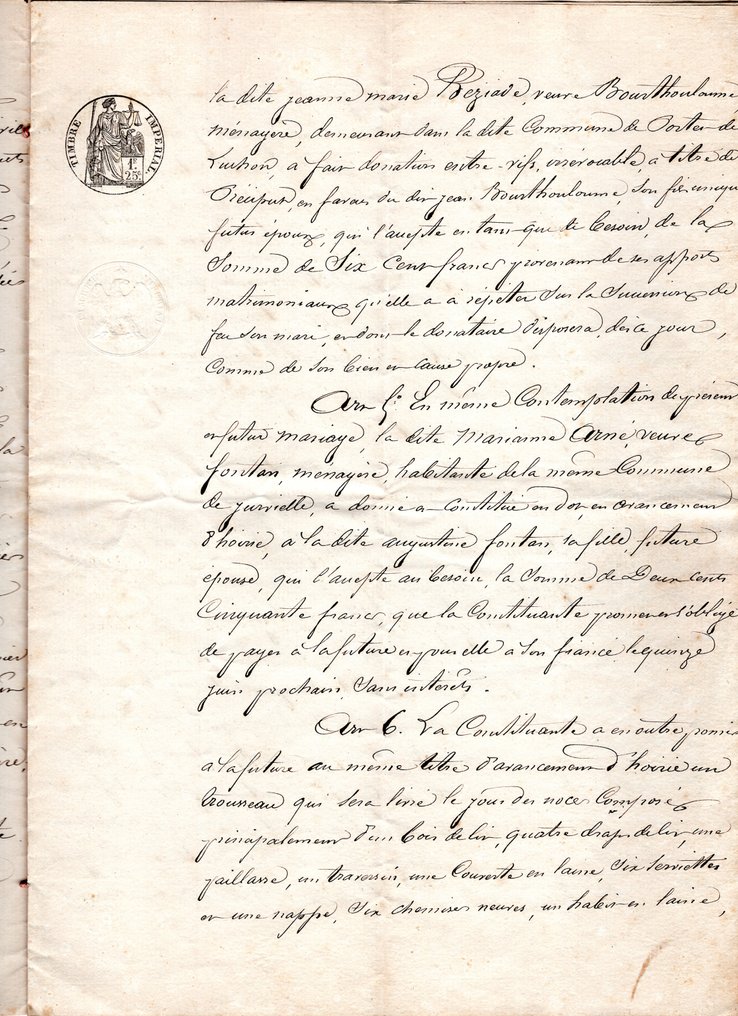 TIMBRE IMPERIAL
1F.
25c.
la dite jeanne marie Beziade, veuve Bourthouloume
ménagère, demeurant dans la dite Commune de Portet de
Luchon, a fait donation entre-vifs, irrévocable, à titre de
Préciput, en faveur du dit jean Bourthouloume, son fils unique
futur époux, qui l'accepte en tant que de besoin, de la
Somme de Six Cent francs provenant de ses apports
matrimoniaux qu'elle a à répéter Sur la Succession de
feu son mari, et dont le donataire disposera, dès ce jour,
comme de son bien et cause propre.
Art 5. En même Contemplation du présent
et futur mariage, la dite Marianne Arné, veuve
fontan, ménagère, habitante de la même Commune
de jurvielle, a donné et constitué en dot, en avancement
d'hoirie, à la dite augustine fontan, sa fille, future
épouse, qui l'accepte au besoin, la Somme de Deux cents
Cinquante francs, que la Constituante promet et s'oblige
de payer à la future et pour elle à Son fiancé, le quinze
juin prochain, Sans intérêts.
Art 6. La Constituante a en outre promis
a la future au même titre d'avancement d'hoirie un
trousseau qui sera livré le jour des noces, Composé
principalement d'un bois de lit, quatre draps de lit, une
paillasse, un traversin, une Couverte en laine, Six Serviettes
et une nappe, Six chemises neuves, un habit en laine,